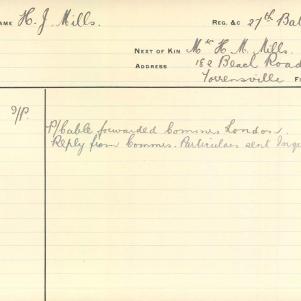 NAME H. J. Mills. REG. &C 27th Bat
NEXT OF KIN Mr H. M. Mills.
ADDRESS 182 Beach Road
Torrensville F
9/P. P/Cable forwarded Commrs London.
Reply from Commrs. Particulars sent Inqu